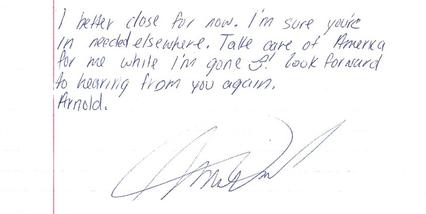 I better close for now. I'm sure you're
in needed elsewhere. Take care of America
for me while I'm gone & I look forward
to hearing from you again.
Arnold.